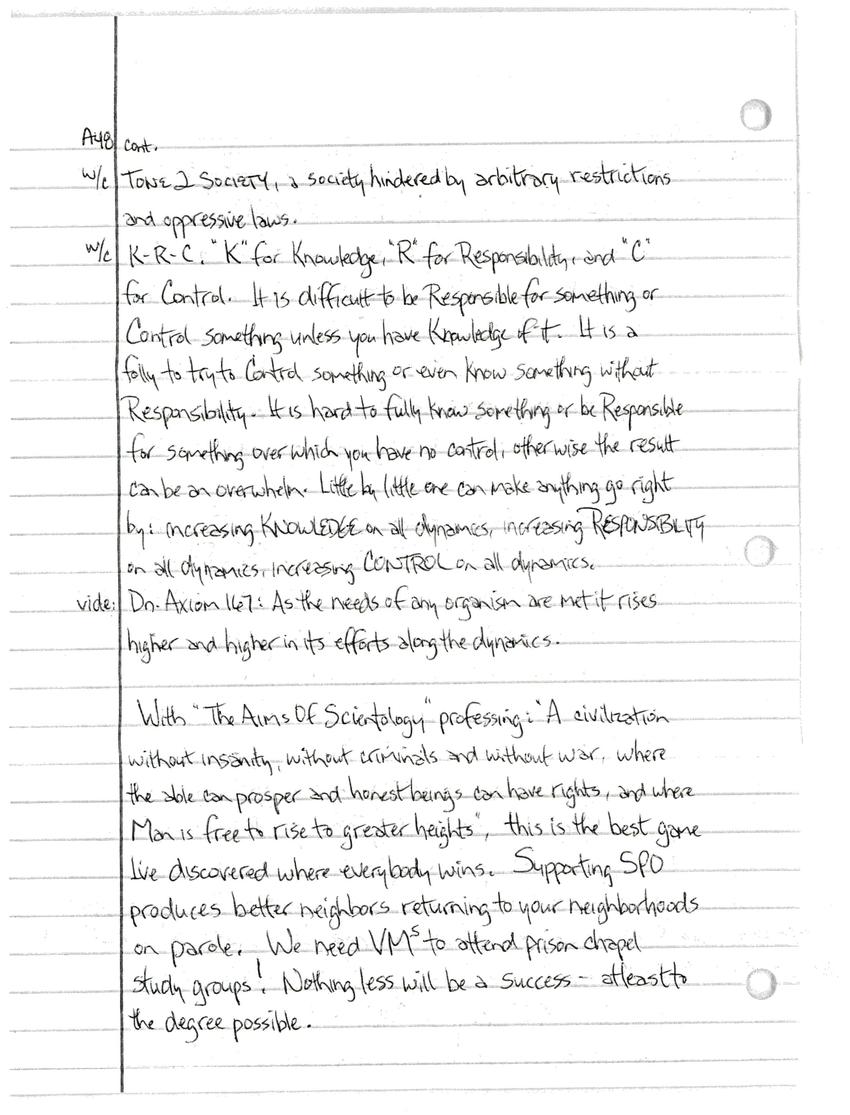 A48 cont.
w/c TONE 2 SOCIETY, a society hindered by arbitrary restrictions
and oppressive laws.
w/c K-R-C. "K" for Knowledge, "R" for Responsibility, and "C"
for Control. It is difficult to be Responsible for something or
Control something unless you have Knowledge of it. It is a
folly to try to Control something or even know something without
Responsibility. It is hard to fully know something or be Responsible
for something over which you have no control, otherwise the result
can be an overwhelm. Little by little one can make anything go right
by: increasing KNOWLEDGE on all dynamics, increasing RESPONSBLITY
on all dynamics, increasing CONTROL on all dynamics.
vide: Dn. Axiom 167: As the needs of any organism are met it rises
higher and higher in its efforts along the dynamics.
With "The Aims Of Scientology" professing: "A civilization
without insanity, without criminals and without war, where
the able can prosper and honest beings can have rights, and where
Man is free to rise to greater heights", this is the best game
I've discovered where everybody wins. Supporting SPO
produces better neighbors returning to your neighborhoods
on parole. We need VMs to attend prison chapel
study groups! Nothing less will be a success - atleast to
the degree possible.